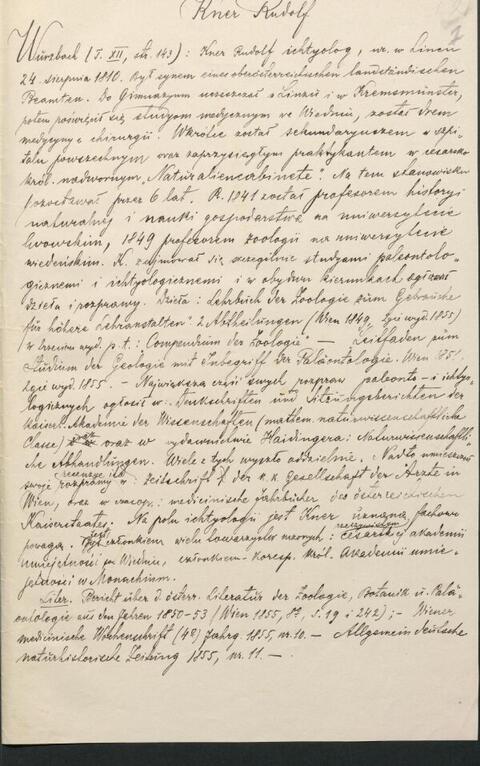 Kner Rudolf
Wurzbach (T. XII, str. 143): Kner Rudolf ichtyolog, ur. w Lincu
24. sierpnia 1810. Był synem eines oberösterreichischen landständischen
Beamten. Do Gimnazyum uczęszczał w Linzu i w Kremsmünster,
potem poświęcił się studyom medycznym we Wiedniu, został drem
medycyny i chirurgii. Wkrótce został sekundaryuszem w szpi-
talu powszechnym oraz zaprzysięgłym praktykantem w cesarsko
król. nadwornym „Naturaliencabinete". Na tem stanowisku
pozostawał przez 6 lat. R. 1841 został profesorem historyi
naturalnej i nauki gospodarstwa na uniwersytecie
lwowskim, 1849 profesorem zoologii na uniwersytecie
wiedeńskim. K. zajmował się szczególnie studyami paleontolo-
gicznemi i ichtyologicznemi i w obydwu kierunkach ogłaszał
dzieła i rozprawy. Dzieła: Lehrbuch der Zoologie zum Gebrauche
für höhere Lehranstalten" 2 Abtheilungen (Wien 1849, 2gie wyd. 1855)
w trzeciem wyd. p. t.: Compendium der Zoologie" – Leitfaden zum
Studium der Geologie mit Inbegriff der Paläontologie. Wien 1851,
2gie wyd. 1855. – Największą część swych rozpraw paleonto- i ichtyo-
logicznych ogłosił w: Denkschriften und Sitzungsberichten der
kaiserl. Akademie der Wissenschaften (mathem. naturwissenschaftliche
Classe) oraz w wydawnictwie Haidingera: Naturwissenschaftli-
che Abhandlungen. Wiele z tych wyszło oddzielnie. Nadto umieszczał
swoje rozprawy w: Zeitschrift d. k. k. Gesellschaft der Ärzte in
Wien, oraz w czasop.: medicinische Jahrbücher des österreichischen
Kaiserstaates. Na polu ichtyologii jest Kner uznaną fachową
powagą. Jest członkiem wielu towarzystw uczonych: rzeczywistym cesarskiej akademii
umiejętności we Wiedniu, członkiem-koresp. król. Akademii umie-
jętności w Monachium.
Liter. Bericht über d. österr. Literatur der Zoologie, Botanik u. Palä-
ontologie aus den Jahren 1850-53 (Wien 1855, 8°, S. 19 i 242); – Wiener
medicinische Wochenschrift (4°) Jahrg. 1855, nr. 10. – Allgemein deutsche
naturhistorische Zeitung 1855, nr. 11. –